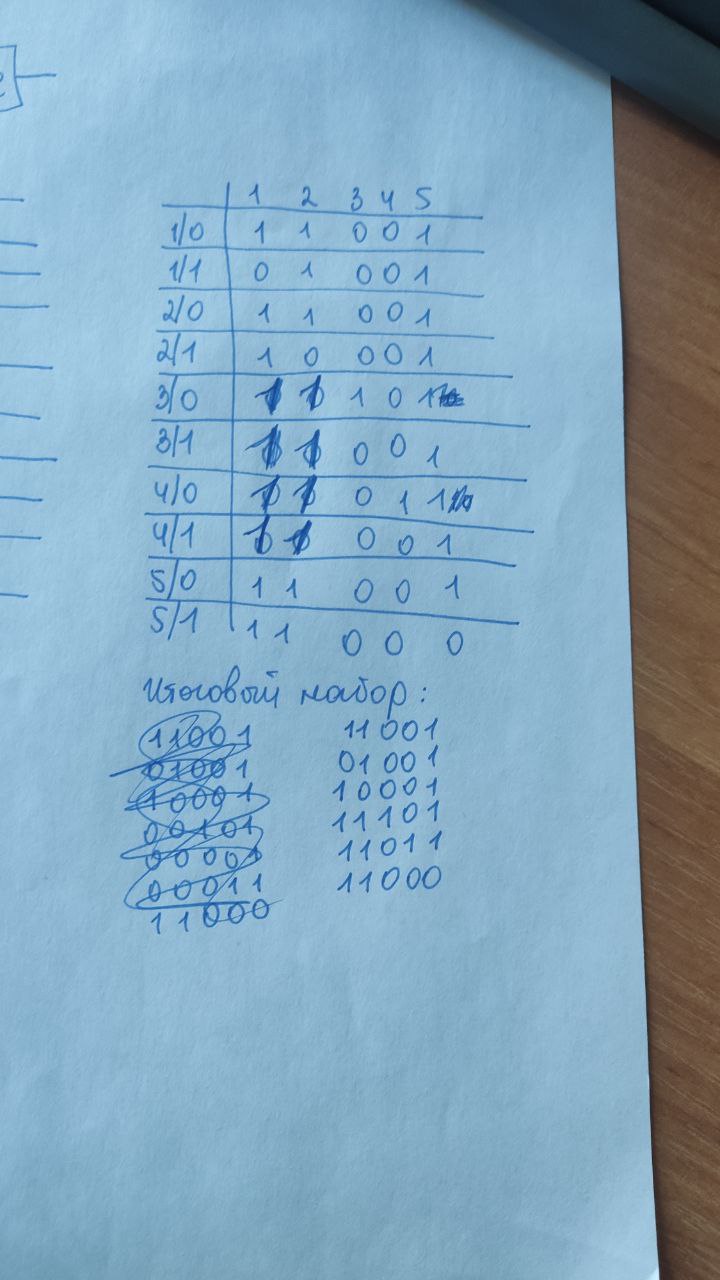 1 2 3 4 5
1/0 1 1 0 0 1
1/1 0 1 0 0 1
2/0 1 1 0 0 1
2/1 1 0 0 0 1
3/0 1 1 1 0 1
3/1 1 1 0 0 1
4/0 1 1 0 1 1
4/1 1 1 0 0 1
5/0 1 1 0 0 1
5/1 1 1 0 0 0
Итоговый набор:
11001 11001
01001 01001
10001 10001
00101 11101
00001 11011
00011 11000
11000